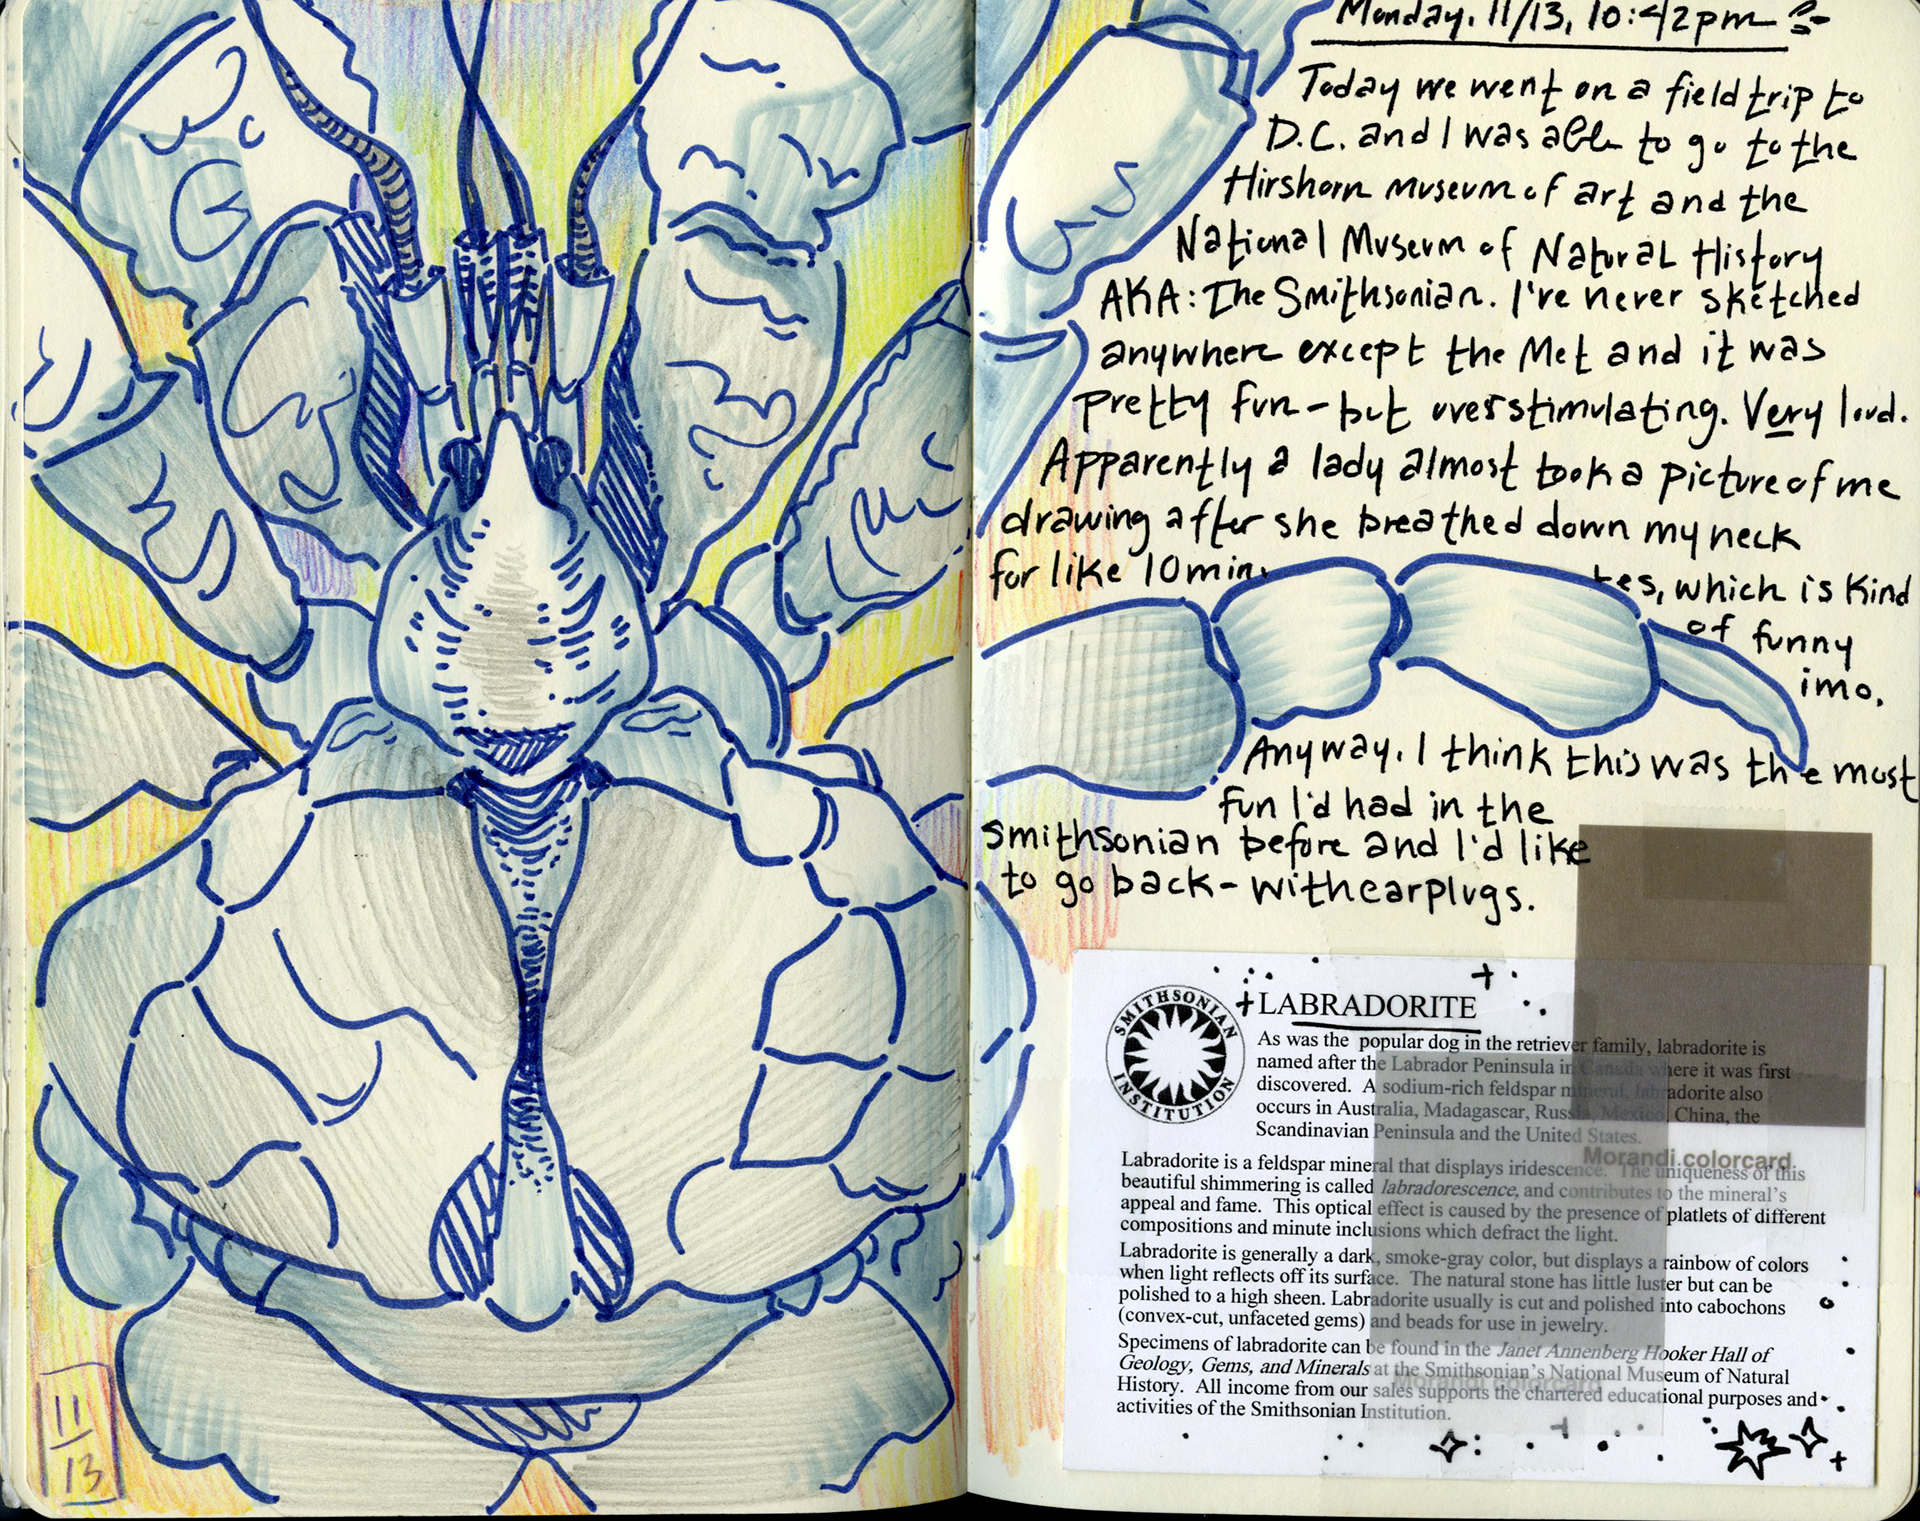 Monday, 11/13, 10:42pm
Today we went on a field trip to
D.C. and I was able to go to the
Hirshorn museum of art and the
National Museum of Natural History
AKA: The Smithsonian. I've never sketched
anywhere except the Met and it was
pretty fun - but overstimulating. Very loud.
Apparently a lady almost took a picture of me
drawing after she breathed down my neck
for like 10 min
tes, which is kind
of funny
imo.
Anyway, I think this was the most
fun I'd had in the
smithsonian before and I'd like
to go back - with earplugs.
SMITHSONIAN INSTITUTION
LABRADORITE
As was the popular dog in the retriever family, labradorite is
named after the Labrador Peninsula in Canada where it was first
discovered. A sodium-rich feldspar mineral, labradorite also
occurs in Australia, Madagascar, Russia, Mexico, China, the
Scandinavian Peninsula and the United States.
Morandi colorcard
Labradorite is a feldspar mineral that displays iridescence. The uniqueness of this
beautiful shimmering is called labradorescence, and contributes to the mineral's
appeal and fame. This optical effect is caused by the presence of platlets of different
compositions and minute inclusions which defract the light.
Labradorite is generally a dark, smoke-gray color, but displays a rainbow of colors
when light reflects off its surface. The natural stone has little luster but can be
polished to a high sheen. Labradorite usually is cut and polished into cabochons
(convex-cut, unfaceted gems) and beads for use in jewelry.
Specimens of labradorite can be found in the Janet Annenberg Hooker Hall of
Geology, Gems, and Minerals at the Smithsonian's National Museum of Natural
Morandi colorcard
History. All income from our sales supports the chartered educational purposes and
activities of the Smithsonian Institution.
11
13